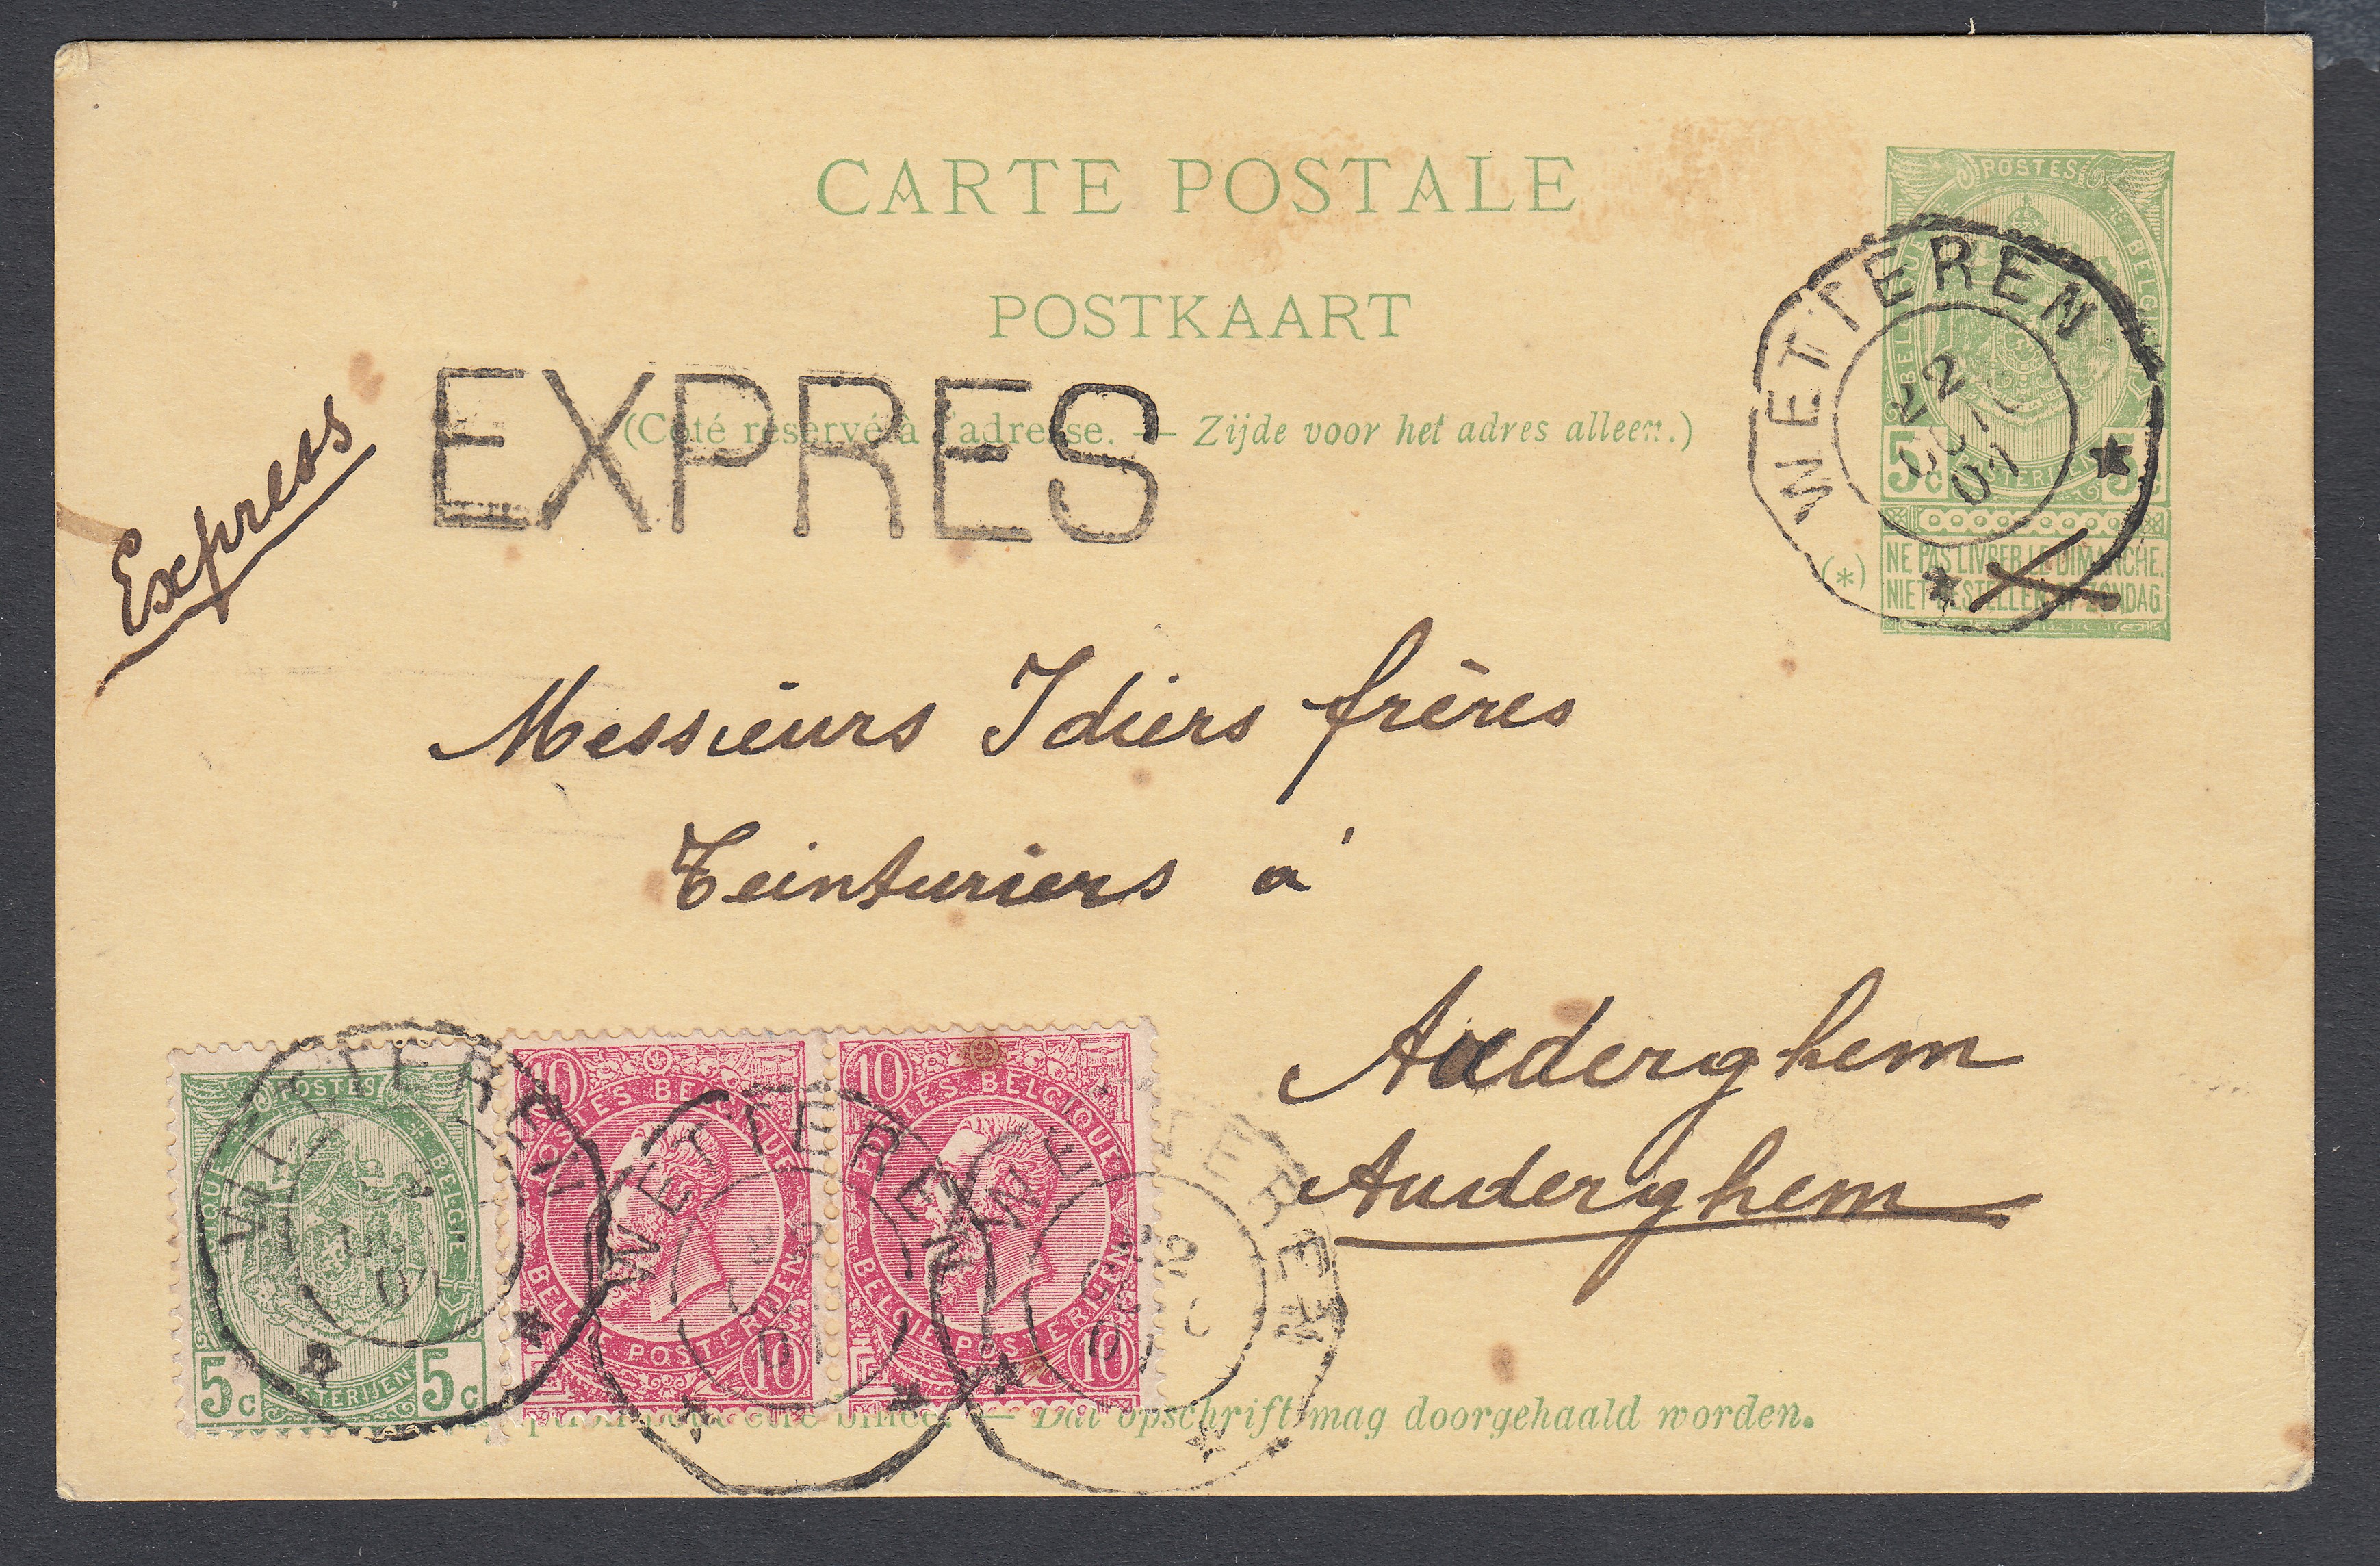 CARTE POSTALE
POSTKAART
(Côté réservé à l'adresse. — Zijde voor het adres alleen.)
EXPRES
Express
POSTES
BELGIQUE BELGIE
5c POSTERIJEN 5c
(*) NE PAS LIVRER LE DIMANCHE.
NIET BESTELLEN OP ZONDAG
WETTEREN
22
07
Messieurs Idiers frères
Teinturiers à
Auderghem
Auderghem
POSTES
BELGIQUE BELGIE
5c POSTERIJEN 5c
WETTEREN
10
POSTES BELGIQUE
BELGIE POSTERIJEN
10
WETTEREN
10
POSTES BELGIQUE
BELGIE POSTERIJEN
10
WETTEREN
être biffée. — Dit opschrift mag doorgehaald worden.